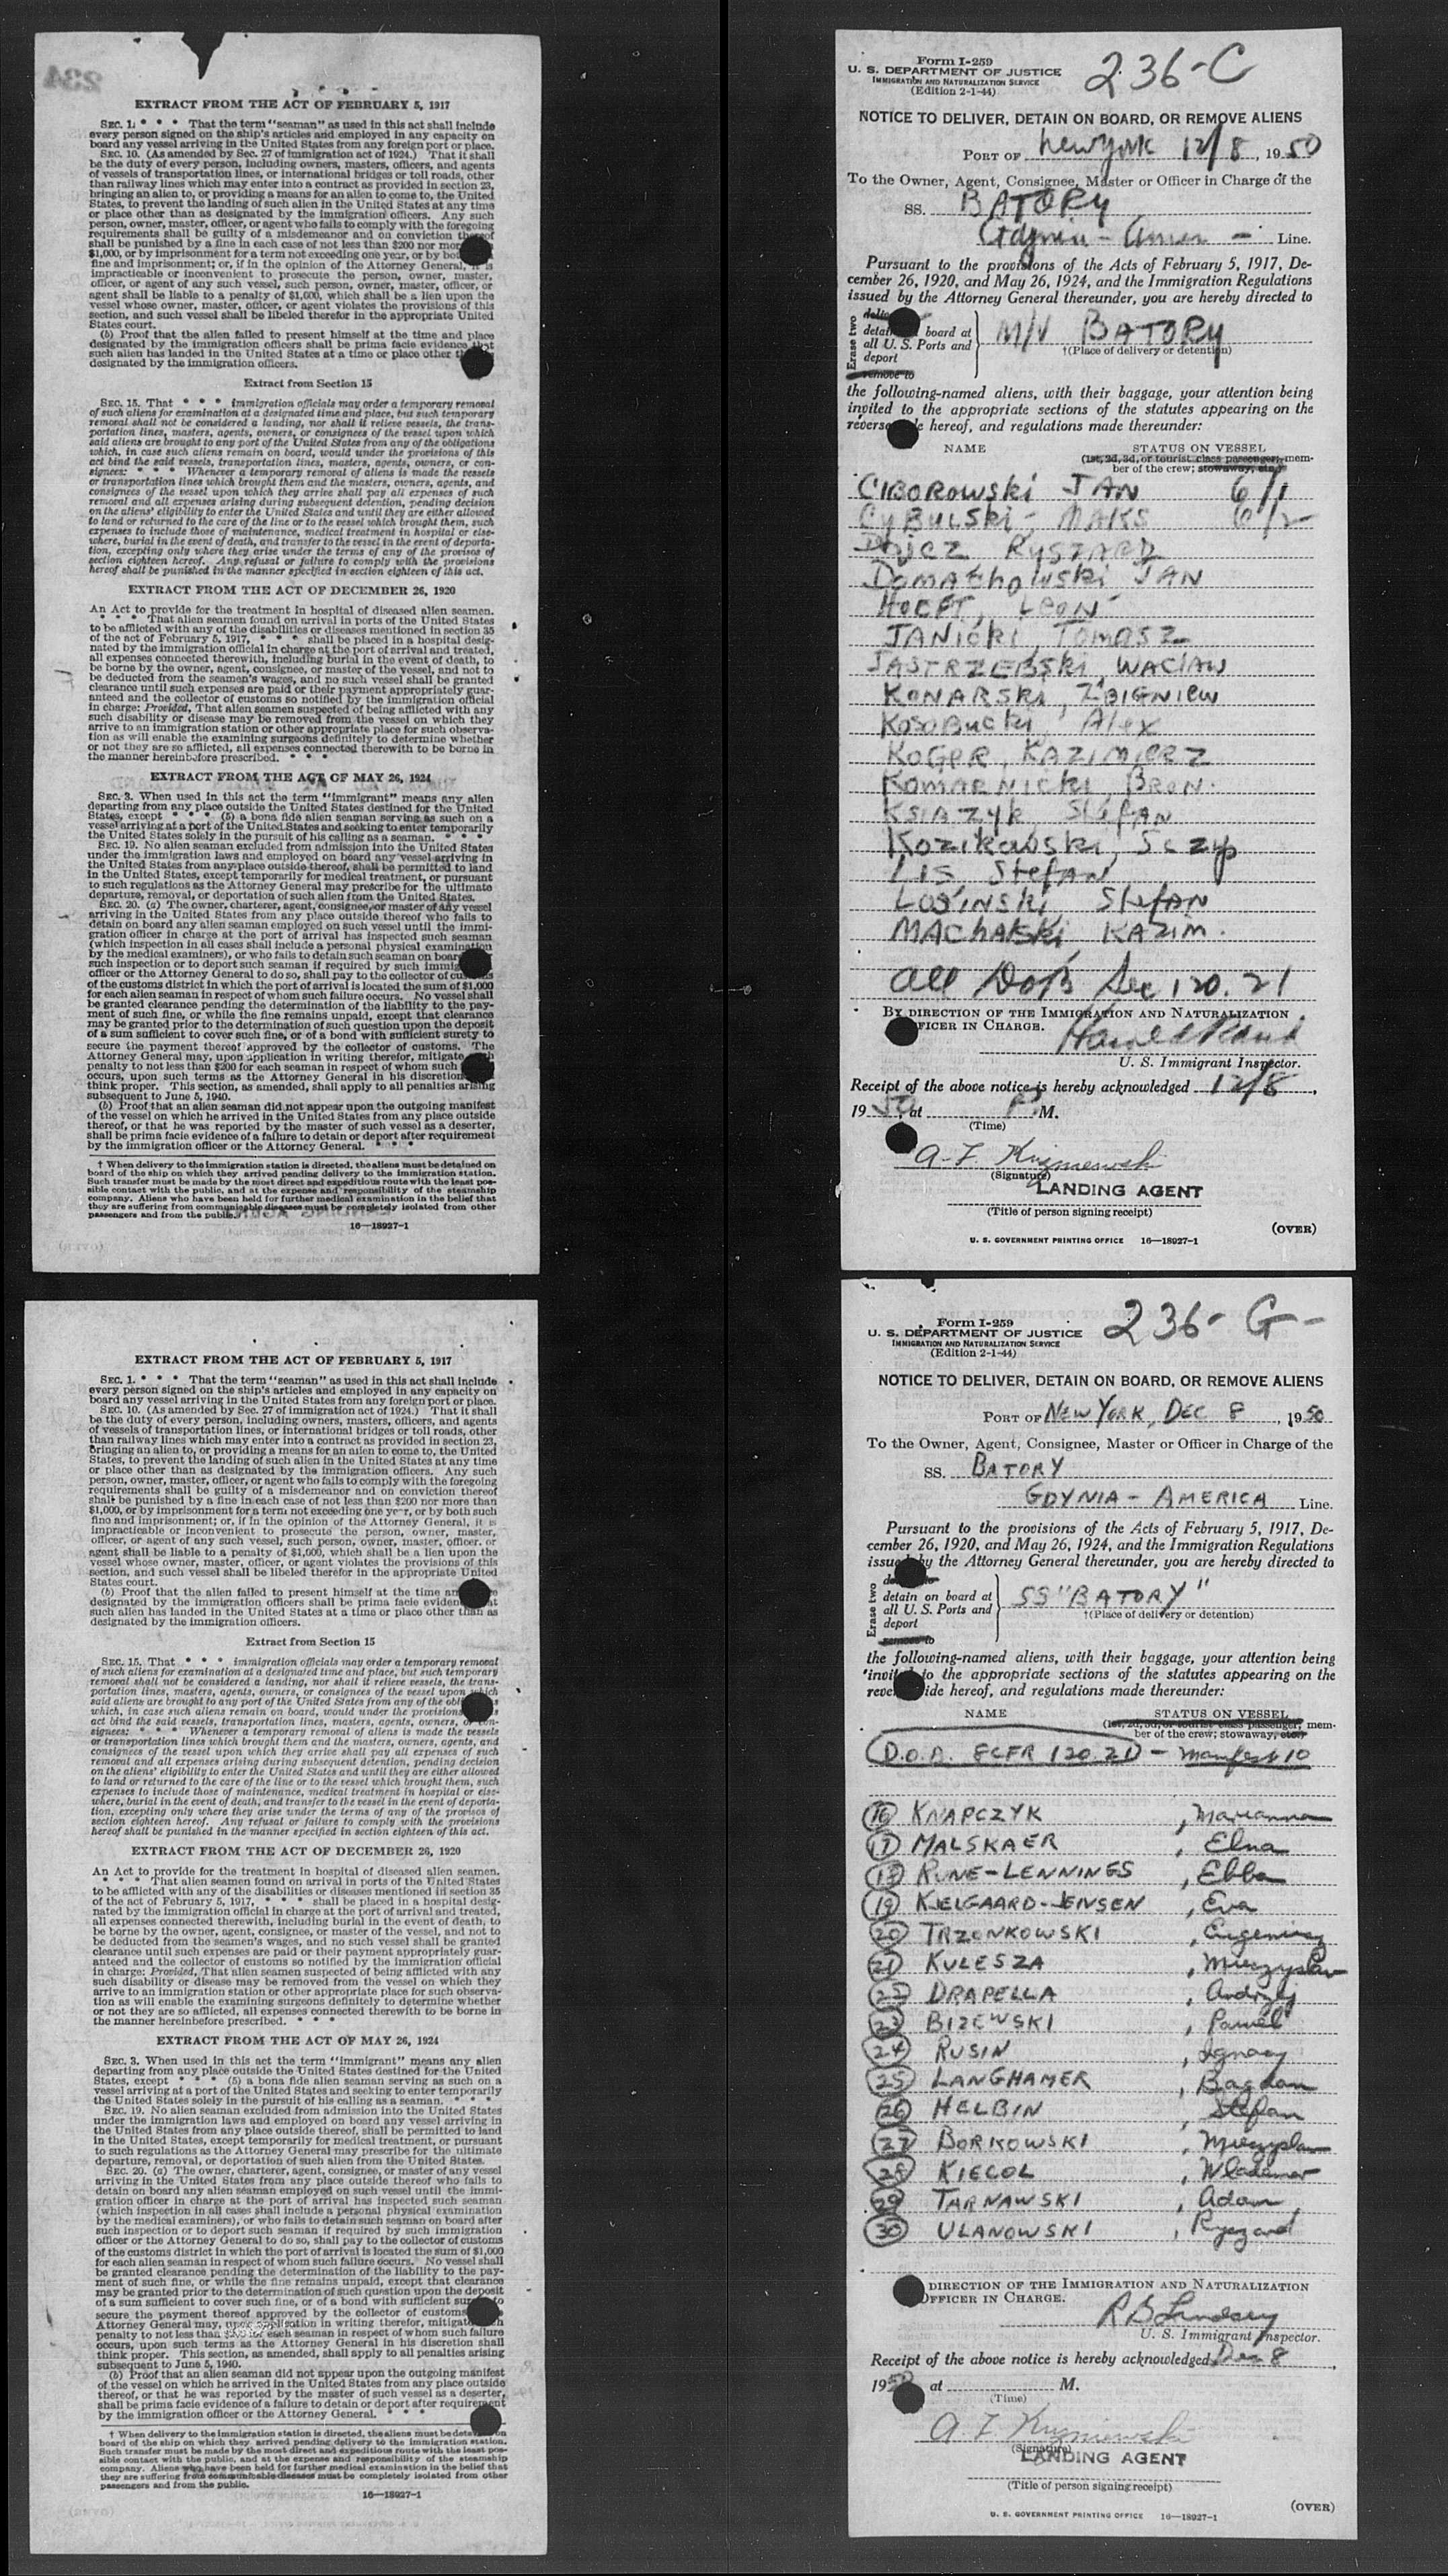 EXTRACT FROM THE ACT OF FEBRUARY 5, 1917
SEC. 1. * * * That the term "seaman" as used in this act shall include
every person signed on the ship's articles and employed in any capacity on
board any vessel arriving in the United States from any foreign port or place.
SEC. 10. (As amended by Sec. 27 of immigration act of 1924.) That it shall
be the duty of every person, including owners, masters, officers, and agents
of vessels of transportation lines, or international bridges or toll roads, other
than railway lines which may enter into a contract as provided in section 23,
bringing an alien to, or providing a means for an alien to come to, the United
States, to prevent the landing of such alien in the United States at any time
or place other than as designated by the immigration officers. Any such
person, owner, master, officer, or agent who fails to comply with the foregoing
requirements shall be guilty of a misdemeanor and on conviction thereof
shall be punished by a fine in each case of not less than $200 nor mor
$1,000, or by imprisonment for a term not exceeding one year, or by bot
fine and imprisonment; or, if in the opinion of the Attorney General, it is
impracticable or inconvenient to prosecute the person, owner, master,
officer, or agent of any such vessel, such person, owner, master, officer, or
agent shall be liable to a penalty of $1,000, which shall be a lien upon the
vessel whose owner, master, officer, or agent violates the provisions of this
section, and such vessel shall be libeled therefor in the appropriate United
States court.
(b) Proof that the alien failed to present himself at the time and place
designated by the immigration officers shall be prima facie evidence that
such alien has landed in the United States at a time or place other th as
designated by the immigration officers.
Extract from Section 15
SEC. 15. That * * * immigration officials may order a temporary removal
of such aliens for examination at a designated time and place, but such temporary
removal shall not be considered a landing, nor shall it relieve vessels, the trans-
portation lines, masters, agents, owners, or consignees of the vessel upon which
said aliens are brought to any port of the United States from any of the obligations
which, in case such aliens remain on board, would under the provisions of this
act bind the said vessels, transportation lines, masters, agents, owners, or con-
signees: * * * Whenever a temporary removal of aliens is made the vessels
or transportation lines which brought them and the masters, owners, agents, and
consignees of the vessel upon which they arrive shall pay all expenses of such
removal and all expenses arising during subsequent detention, pending decision
on the aliens' eligibility to enter the United States and until they are either allowed
to land or returned to the care of the line or to the vessel which brought them, such
expenses to include those of maintenance, medical treatment in hospital or else-
where, burial in the event of death, and transfer to the vessel in the event of deporta-
tion, excepting only where they arise under the terms of any of the provisos of
section eighteen hereof. Any refusal or failure to comply with the provisions
hereof shall be punished in the manner specified in section eighteen of this act.
EXTRACT FROM THE ACT OF DECEMBER 26, 1920
An Act to provide for the treatment in hospital of diseased alien seamen.
* * * * That alien seamen found on arrival in ports of the United States
to be afflicted with any of the disabilities or diseases mentioned in section 35
of the act of February 5, 1917, * * * shall be placed in a hospital desig-
nated by the immigration official in charge at the port of arrival and treated,
all expenses connected therewith, including burial in the event of death, to
be borne by the owner, agent, consignee, or master of the vessel, and not to
be deducted from the seamen's wages, and no such vessel shall be granted
clearance until such expenses are paid or their payment appropriately guar-
anteed and the collector of customs so notified by the immigration official
in charge: Provided, That alien seamen suspected of being afflicted with any
such disability or disease may be removed from the vessel on which they
arrive to an immigration station or other appropriate place for such observa-
tion as will enable the examining surgeons definitely to determine whether
or not they are so afflicted, all expenses connected therewith to be borne in
the manner hereinbefore prescribed. * * *
EXTRACT FROM THE ACT OF MAY 26, 1924
SEC. 3. When used in this act the term "immigrant" means any alien
departing from any place outside the United States destined for the United
States, except * * * (5) a bona fide alien seaman serving as such on a
vessel arriving at a port of the United States and seeking to enter temporarily
the United States solely in the pursuit of his calling as a seaman. * * *
SEC. 19. No alien seaman excluded from admission into the United States
under the immigration laws and employed on board any vessel arriving in
the United States from any place outside thereof, shall be permitted to land
in the United States, except temporarily for medical treatment, or pursuant
to such regulations as the Attorney General may prescribe for the ultimate
departure, removal, or deportation of such alien from the United States.
SEC. 20. (a) The owner, charterer, agent, consignee, or master of any vessel
arriving in the United States from any place outside thereof who fails to
detain on board any alien seaman employed on such vessel until the immi-
gration officer in charge at the port of arrival has inspected such seaman
(which inspection in all cases shall include a personal physical examination
by the medical examiners), or who fails to detain such seaman on boar
such inspection or to deport such seaman if required by such immig
officer or the Attorney General to do so, shall pay to the collector of customs
of the customs district in which the port of arrival is located the sum of $1,000
for each alien seaman in respect of whom such failure occurs. No vessel shall
be granted clearance pending the determination of the liability to the pay-
ment of such fine, or while the fine remains unpaid, except that clearance
may be granted prior to the determination of such question upon the deposit
of a sum sufficient to cover such fine, or of a bond with sufficient surety to
secure the payment thereof approved by the collector of customs. The
Attorney General may, upon application in writing therefor, mitigate
penalty to not less than $200 for each seaman in respect of whom such
occurs, upon such terms as the Attorney General in his discretion
think proper. This section, as amended, shall apply to all penalties arising
subsequent to June 5, 1940.
(b) Proof that an alien seaman did not appear upon the outgoing manifest
of the vessel on which he arrived in the United States from any place outside
thereof, or that he was reported by the master of such vessel as a deserter,
shall be prima facie evidence of a failure to detain or deport after requirement
by the immigration officer or the Attorney General. * * *
† When delivery to the immigration station is directed, the aliens must be detained on
board of the ship on which they arrived pending delivery to the immigration station.
Such transfer must be made by the most direct and expeditious route with the least pos-
sible contact with the public, and at the expense and responsibility of the steamship
company. Aliens who have been held for further medical examination in the belief that
they are suffering from communicable diseases must be completely isolated from other
passengers and from the public.
16—18927-1
236-C
Form I-259
U. S. DEPARTMENT OF JUSTICE
IMMIGRATION AND NATURALIZATION SERVICE
(Edition 2-1-44)
NOTICE TO DELIVER, DETAIN ON BOARD, OR REMOVE ALIENS
PORT OF New York 12/8, 1950
To the Owner, Agent, Consignee, Master or Officer in Charge of the
SS. BATORY
Gdynia - Amer - Line.
Pursuant to the provisions of the Acts of February 5, 1917, De-
cember 26, 1920, and May 26, 1924, and the Immigration Regulations
issued by the Attorney General thereunder, you are hereby directed to
Erase two
detai board at
all U. S. Ports and
deport
remove to
M/V BATORY
†(Place of delivery or detention)
the following-named aliens, with their baggage, your attention being
invited to the appropriate sections of the statutes appearing on the
reverse hereof, and regulations made thereunder:
NAME STATUS ON VESSEL
(1st, 2d, 3d, or tourist class passenger; mem-
ber of the crew; stowaway, etc.)
CIBOROWSKI JAN 6/1
CYBULSKI - MAKS 6/2
RYSZARD
DOMACHOWSKI JAN
HOEFT, LEON
JANICKI, TOMASZ
JASTRZEBSKI, WACLAW
KONARSKI, ZBIGNIEW
KOSOBUCKI, Alex
KOGER, KAZIMIERZ
KOMARNICKI, BRON.
KSIAZYK, STEFAN
KOZIKOWSKI, Sczep
LIS Stefan
LOSINSKI, StefAN
MACHALSKI, KAZIM.
all DOB Sec 120.21
BY DIRECTION OF THE IMMIGRATION AND NATURALIZATION
FICER IN CHARGE.
U. S. Immigrant Inspector.
Receipt of the above notice is hereby acknowledged 12/8,
1950, at P. M.
(Time)
(Signature)
LANDING AGENT
(Title of person signing receipt)
(OVER)
U. S. GOVERNMENT PRINTING OFFICE 16—18927-1
EXTRACT FROM THE ACT OF FEBRUARY 5, 1917
SEC. 1. * * * That the term "seaman" as used in this act shall include
every person signed on the ship's articles and employed in any capacity on
board any vessel arriving in the United States from any foreign port or place.
SEC. 10. (As amended by Sec. 27 of immigration act of 1924.) That it shall
be the duty of every person, including owners, masters, officers, and agents
of vessels of transportation lines, or international bridges or toll roads, other
than railway lines which may enter into a contract as provided in section 23,
bringing an alien to, or providing a means for an alien to come to, the United
States, to prevent the landing of such alien in the United States at any time
or place other than as designated by the immigration officers. Any such
person, owner, master, officer, or agent who fails to comply with the foregoing
requirements shall be guilty of a misdemeanor and on conviction thereof
shall be punished by a fine in each case of not less than $200 nor more than
$1,000, or by imprisonment for a term not exceeding one year, or by both such
fine and imprisonment; or, if in the opinion of the Attorney General, it is
impracticable or inconvenient to prosecute the person, owner, master,
officer, or agent of any such vessel, such person, owner, master, officer, or
agent shall be liable to a penalty of $1,000, which shall be a lien upon the
vessel whose owner, master, officer, or agent violates the provisions of this
section, and such vessel shall be libeled therefor in the appropriate United
States court.
(b) Proof that the alien failed to present himself at the time an
designated by the immigration officers shall be prima facie eviden at
such alien has landed in the United States at a time or place other than as
designated by the immigration officers.
Extract from Section 15
SEC. 15. That * * * immigration officials may order a temporary removal
of such aliens for examination at a designated time and place, but such temporary
removal shall not be considered a landing, nor shall it relieve vessels, the trans-
portation lines, masters, agents, owners, or consignees of the vessel upon which
said aliens are brought to any port of the United States from any of the obl
which, in case such aliens remain on board, would under the provisions s
act bind the said vessels, transportation lines, masters, agents, owners, or con-
signees: * * * Whenever a temporary removal of aliens is made the vessels
or transportation lines which brought them and the masters, owners, agents, and
consignees of the vessel upon which they arrive shall pay all expenses of such
removal and all expenses arising during subsequent detention, pending decision
on the aliens' eligibility to enter the United States and until they are either allowed
to land or returned to the care of the line or to the vessel which brought them, such
expenses to include those of maintenance, medical treatment in hospital or else-
where, burial in the event of death, and transfer to the vessel in the event of deporta-
tion, excepting only where they arise under the terms of any of the provisos of
section eighteen hereof. Any refusal or failure to comply with the provisions
hereof shall be punished in the manner specified in section eighteen of this act.
EXTRACT FROM THE ACT OF DECEMBER 26, 1920
An Act to provide for the treatment in hospital of diseased alien seamen.
* * * * That alien seamen found on arrival in ports of the United States
to be afflicted with any of the disabilities or diseases mentioned in section 35
of the act of February 5, 1917, * * * shall be placed in a hospital desig-
nated by the immigration official in charge at the port of arrival and treated,
all expenses connected therewith, including burial in the event of death, to
be borne by the owner, agent, consignee, or master of the vessel, and not to
be deducted from the seamen's wages, and no such vessel shall be granted
clearance until such expenses are paid or their payment appropriately guar-
anteed and the collector of customs so notified by the immigration official
in charge: Provided, That alien seamen suspected of being afflicted with any
such disability or disease may be removed from the vessel on which they
arrive to an immigration station or other appropriate place for such observa-
tion as will enable the examining surgeons definitely to determine whether
or not they are so afflicted, all expenses connected therewith to be borne in
the manner hereinbefore prescribed. * * *
EXTRACT FROM THE ACT OF MAY 26, 1924
SEC. 3. When used in this act the term "immigrant" means any alien
departing from any place outside the United States destined for the United
States, except * * * (5) a bona fide alien seaman serving as such on a
vessel arriving at a port of the United States and seeking to enter temporarily
the United States solely in the pursuit of his calling as a seaman. * * *
SEC. 19. No alien seaman excluded from admission into the United States
under the immigration laws and employed on board any vessel arriving in
the United States from any place outside thereof, shall be permitted to land
in the United States, except temporarily for medical treatment, or pursuant
to such regulations as the Attorney General may prescribe for the ultimate
departure, removal, or deportation of such alien from the United States.
SEC. 20. (a) The owner, charterer, agent, consignee, or master of any vessel
arriving in the United States from any place outside thereof who fails to
detain on board any alien seaman employed on such vessel until the immi-
gration officer in charge at the port of arrival has inspected such seaman
(which inspection in all cases shall include a personal physical examination
by the medical examiners), or who fails to detain such seaman on board after
such inspection or to deport such seaman if required by such immigration
officer or the Attorney General to do so, shall pay to the collector of customs
of the customs district in which the port of arrival is located the sum of $1,000
for each alien seaman in respect of whom such failure occurs. No vessel shall
be granted clearance pending the determination of the liability to the pay-
ment of such fine, or while the fine remains unpaid, except that clearance
may be granted prior to the determination of such question upon the deposit
of a sum sufficient to cover such fine, or of a bond with sufficient surety to
secure the payment thereof approved by the collector of customs
Attorney General may, upon application in writing therefor, mitigat
penalty to not less than $200 for each seaman in respect of whom such failure
occurs, upon such terms as the Attorney General in his discretion shall
think proper. This section, as amended, shall apply to all penalties arising
subsequent to June 5, 1940.
(b) Proof that an alien seaman did not appear upon the outgoing manifest
of the vessel on which he arrived in the United States from any place outside
thereof, or that he was reported by the master of such vessel as a deserter,
shall be prima facie evidence of a failure to detain or deport after requirement
by the immigration officer or the Attorney General. * * *
† When delivery to the immigration station is directed, the aliens must be detained on
board of the ship on which they arrived pending delivery to the immigration station.
Such transfer must be made by the most direct and expeditious route with the least pos-
sible contact with the public, and at the expense and responsibility of the steamship
company. Aliens who have been held for further medical examination in the belief that
they are suffering from communicable diseases must be completely isolated from other
passengers and from the public.
16—18927-1
236-G-
Form I-259
U. S. DEPARTMENT OF JUSTICE
IMMIGRATION AND NATURALIZATION SERVICE
(Edition 2-1-44)
NOTICE TO DELIVER, DETAIN ON BOARD, OR REMOVE ALIENS
PORT OF NEW YORK, DEC 8, 1950
To the Owner, Agent, Consignee, Master or Officer in Charge of the
SS. BATORY
GDYNIA - AMERICA Line.
Pursuant to the provisions of the Acts of February 5, 1917, De-
cember 26, 1920, and May 26, 1924, and the Immigration Regulations
issued by the Attorney General thereunder, you are hereby directed to
Erase two
detain on board at
all U. S. Ports and
deport
remove to
SS "BATORY"
†(Place of delivery or detention)
the following-named aliens, with their baggage, your attention being
invit to the appropriate sections of the statutes appearing on the
reve ide hereof, and regulations made thereunder:
NAME STATUS ON VESSEL
(1st, 2d, 3d, or tourist class passenger; mem-
ber of the crew; stowaway, etc.)
D.O.B. 8CFR 120.21 - manifest 10
16 KNAPCZYK, Marianna
17 MALSKAER, Elna
18 RUNE-LENNINGS, Ebba
19 KJELGAARD-JENSEN, Eva
20 TRZONKOWSKI, Eugeniusz
21 KULESZA, Mieczyslaw
22 DRAPELLA, Andrzej
23 BIZEWSKI, Pawel
24 RUSIN, Ignacy
25 LANGHAMER, Bogdan
26 HELBIN, Stefan
27 BORKOWSKI, Mieczyslaw
28 KIECOL, Wladimir
29 TARNAWSKI, Adam
30 ULANOWSKI, Ryszard
DIRECTION OF THE IMMIGRATION AND NATURALIZATION
OFFICER IN CHARGE.
R B Lindsey
U. S. Immigrant Inspector.
Receipt of the above notice is hereby acknowledged Dec 8,
1950 at M.
(Time)
(Signature)
LANDING AGENT
(Title of person signing receipt)
(OVER)
U. S. GOVERNMENT PRINTING OFFICE 16—18927-1